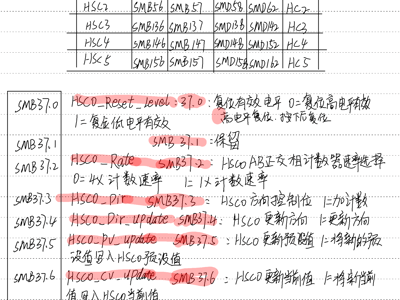 HSC2 SMB56 SMB57 SMD58 SMD62 HC2
HSC3 SMB136 SMB137 SMD138 SMD142 HC3
HSC4 SMB146 SMB147 SMD148 SMD152 HC4
HSC5 SMB156 SMB157 SMD158 SMD162 HC5
SMB37.0 HSC0_Reset_Level:37.0:复位有效电平 0=复位高电平有效
1=复位低电平有效 高电平复位.按下复位
SMB37.1 SMB37.1:保留
SMB37.2 HSC0_Rate SMB37.2:HSC0 AB正交相计数器速率选择
0=4X计数速率 1=1X计数速率
SMB37.3 HSC0_Dir SMB37.3=HSC0方向控制位 1=加计数
SMB37.4 HSC0_Dir_update SMB37.4:HSC0更新方向 1=更新方向
SMB37.5 HSC0_PV_update SMB37.5:HSC0更新预设值 1=将新的预
设值写入HSC0预设值
SMB37.6 HSC0_CV_update SMB37.6:HSC0更新当前值 1=将新当前
值写入HSC0当前值